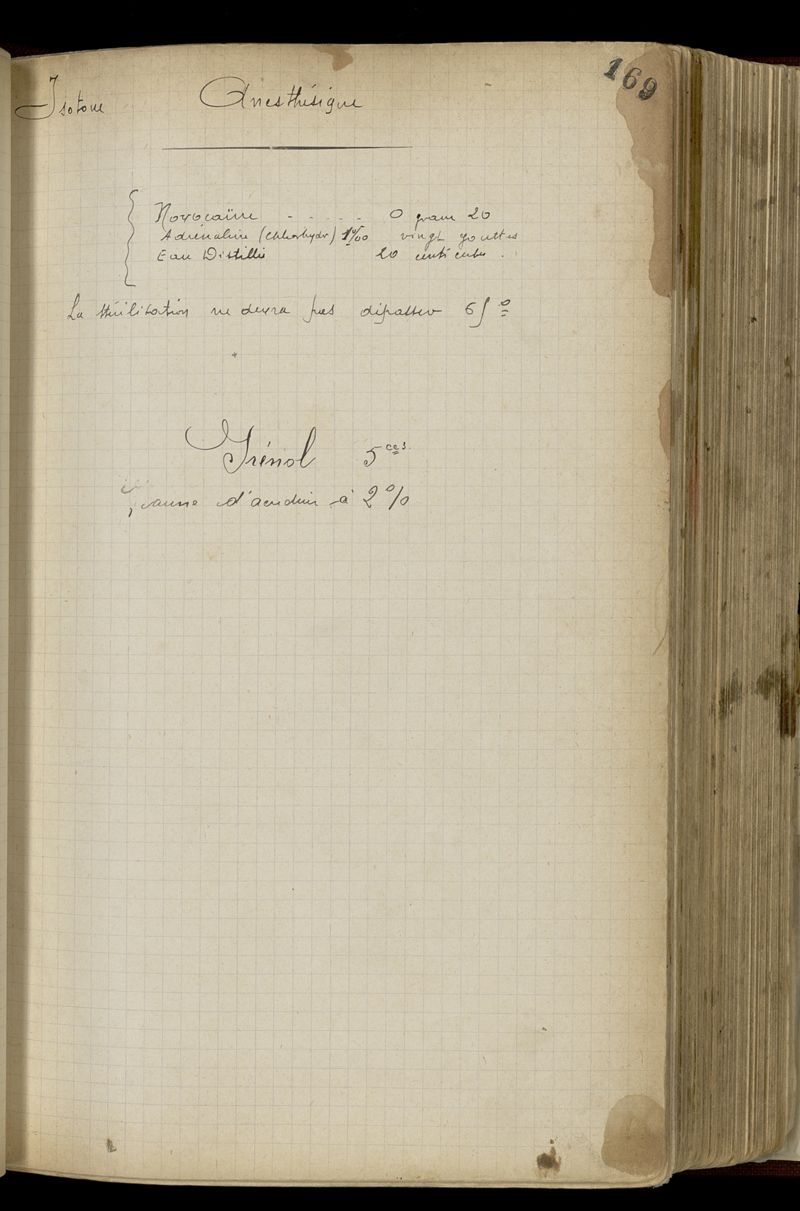 169
Isotone Anesthésique
Novocaïne - - - - - 0 gram 20
Adrénaline (Chlorhydr) 1‰ vingt gouttes
Eau Distillée 20 centi cube .
La stérilisation ne devra pas dépasser 65°
5 ces
d'acridine à 2 %